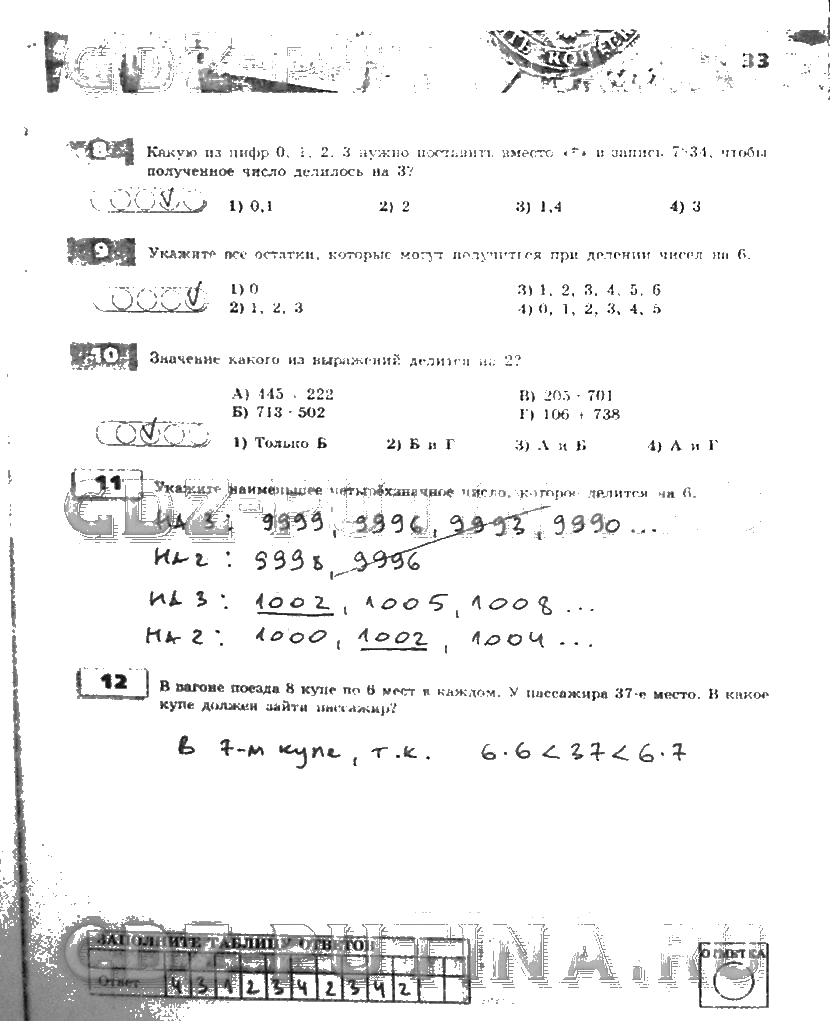 33
8 Какую из цифр 0, 1, 2, 3 нужно поставить вместо «*» в запись 7*34, чтобы
полученное число делилось на 3?
1) 0,1 2) 2 3) 1,4 4) 3
9 Укажите все остатки, которые могут получиться при делении чисел на 6.
1) 0 3) 1, 2, 3, 4, 5, 6
2) 1, 2, 3 4) 0, 1, 2, 3, 4, 5
10 Значение какого из выражений делится на 2?
А) 445 + 222 В) 205 · 701
Б) 713 · 502 Г) 106 + 738
1) Только Б 2) Б и Г 3) А и Б 4) А и Г
11 Укажите наименьшее четырёхзначное число, которое делится на 6.
НА 3: 9999, 9996, 9993, 9990 ...
НА 2: 9998, 9996
НА 3: 1002, 1005, 1008 ...
НА 2: 1000, 1002, 1004 ...
12 В вагоне поезда 8 купе по 6 мест в каждом. У пассажира 37-е место. В какое
купе должен зайти пассажир?
В 7-м купе, т.к. 6·6<37<6·7
GDZ-PUTINA.RU
ЗАПОЛНИТЕ ТАБЛИЦУ ОТВЕТОВ
ОТМЕТКА
Ответ 4 3 1 2 3 4 2 3 4 2